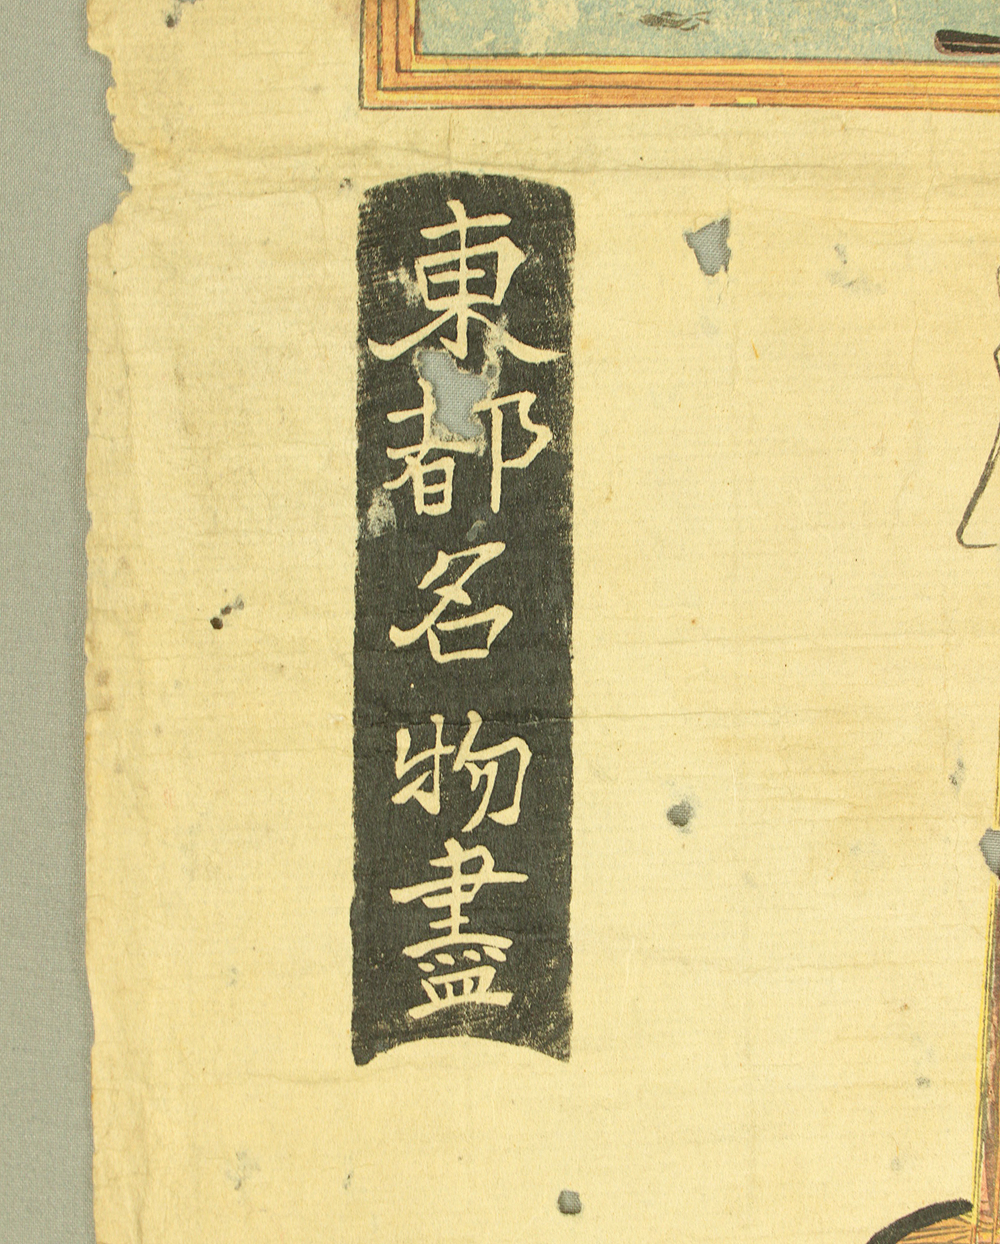 東都名物盡